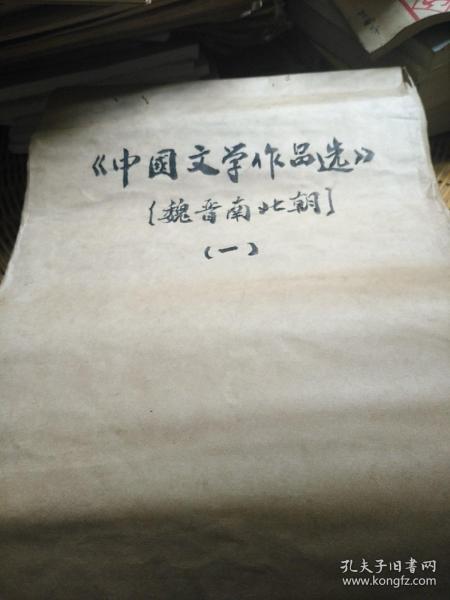 《中國文学作品选》
〔魏晋南北朝〕
（一）
孔夫子旧书网
www.kongfz.com